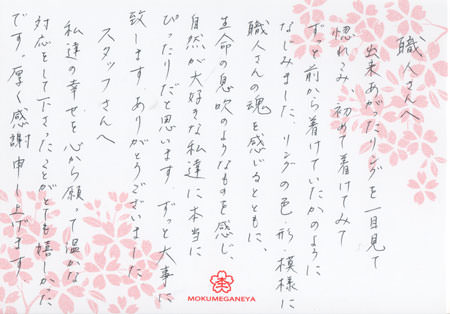 職人さんへ
出来あがったリングを一目見て
惚れこみ、初めて着けてみて
ずっと前から着けていたかのように
なじみました。リングの色・形・模様に
職人さんの魂を感じるとともに、
生命の息吹のようなものを感じ、
自然が大好きな私達に本当に
ぴったりだと思います。ずっと大事に
致します。ありがとうございました
スタッフさんへ
私達の幸せを心から願って温かな
対応をして下さったことがとても嬉しかった
です。厚く感謝申し上げます
MOKUMEGANEYA